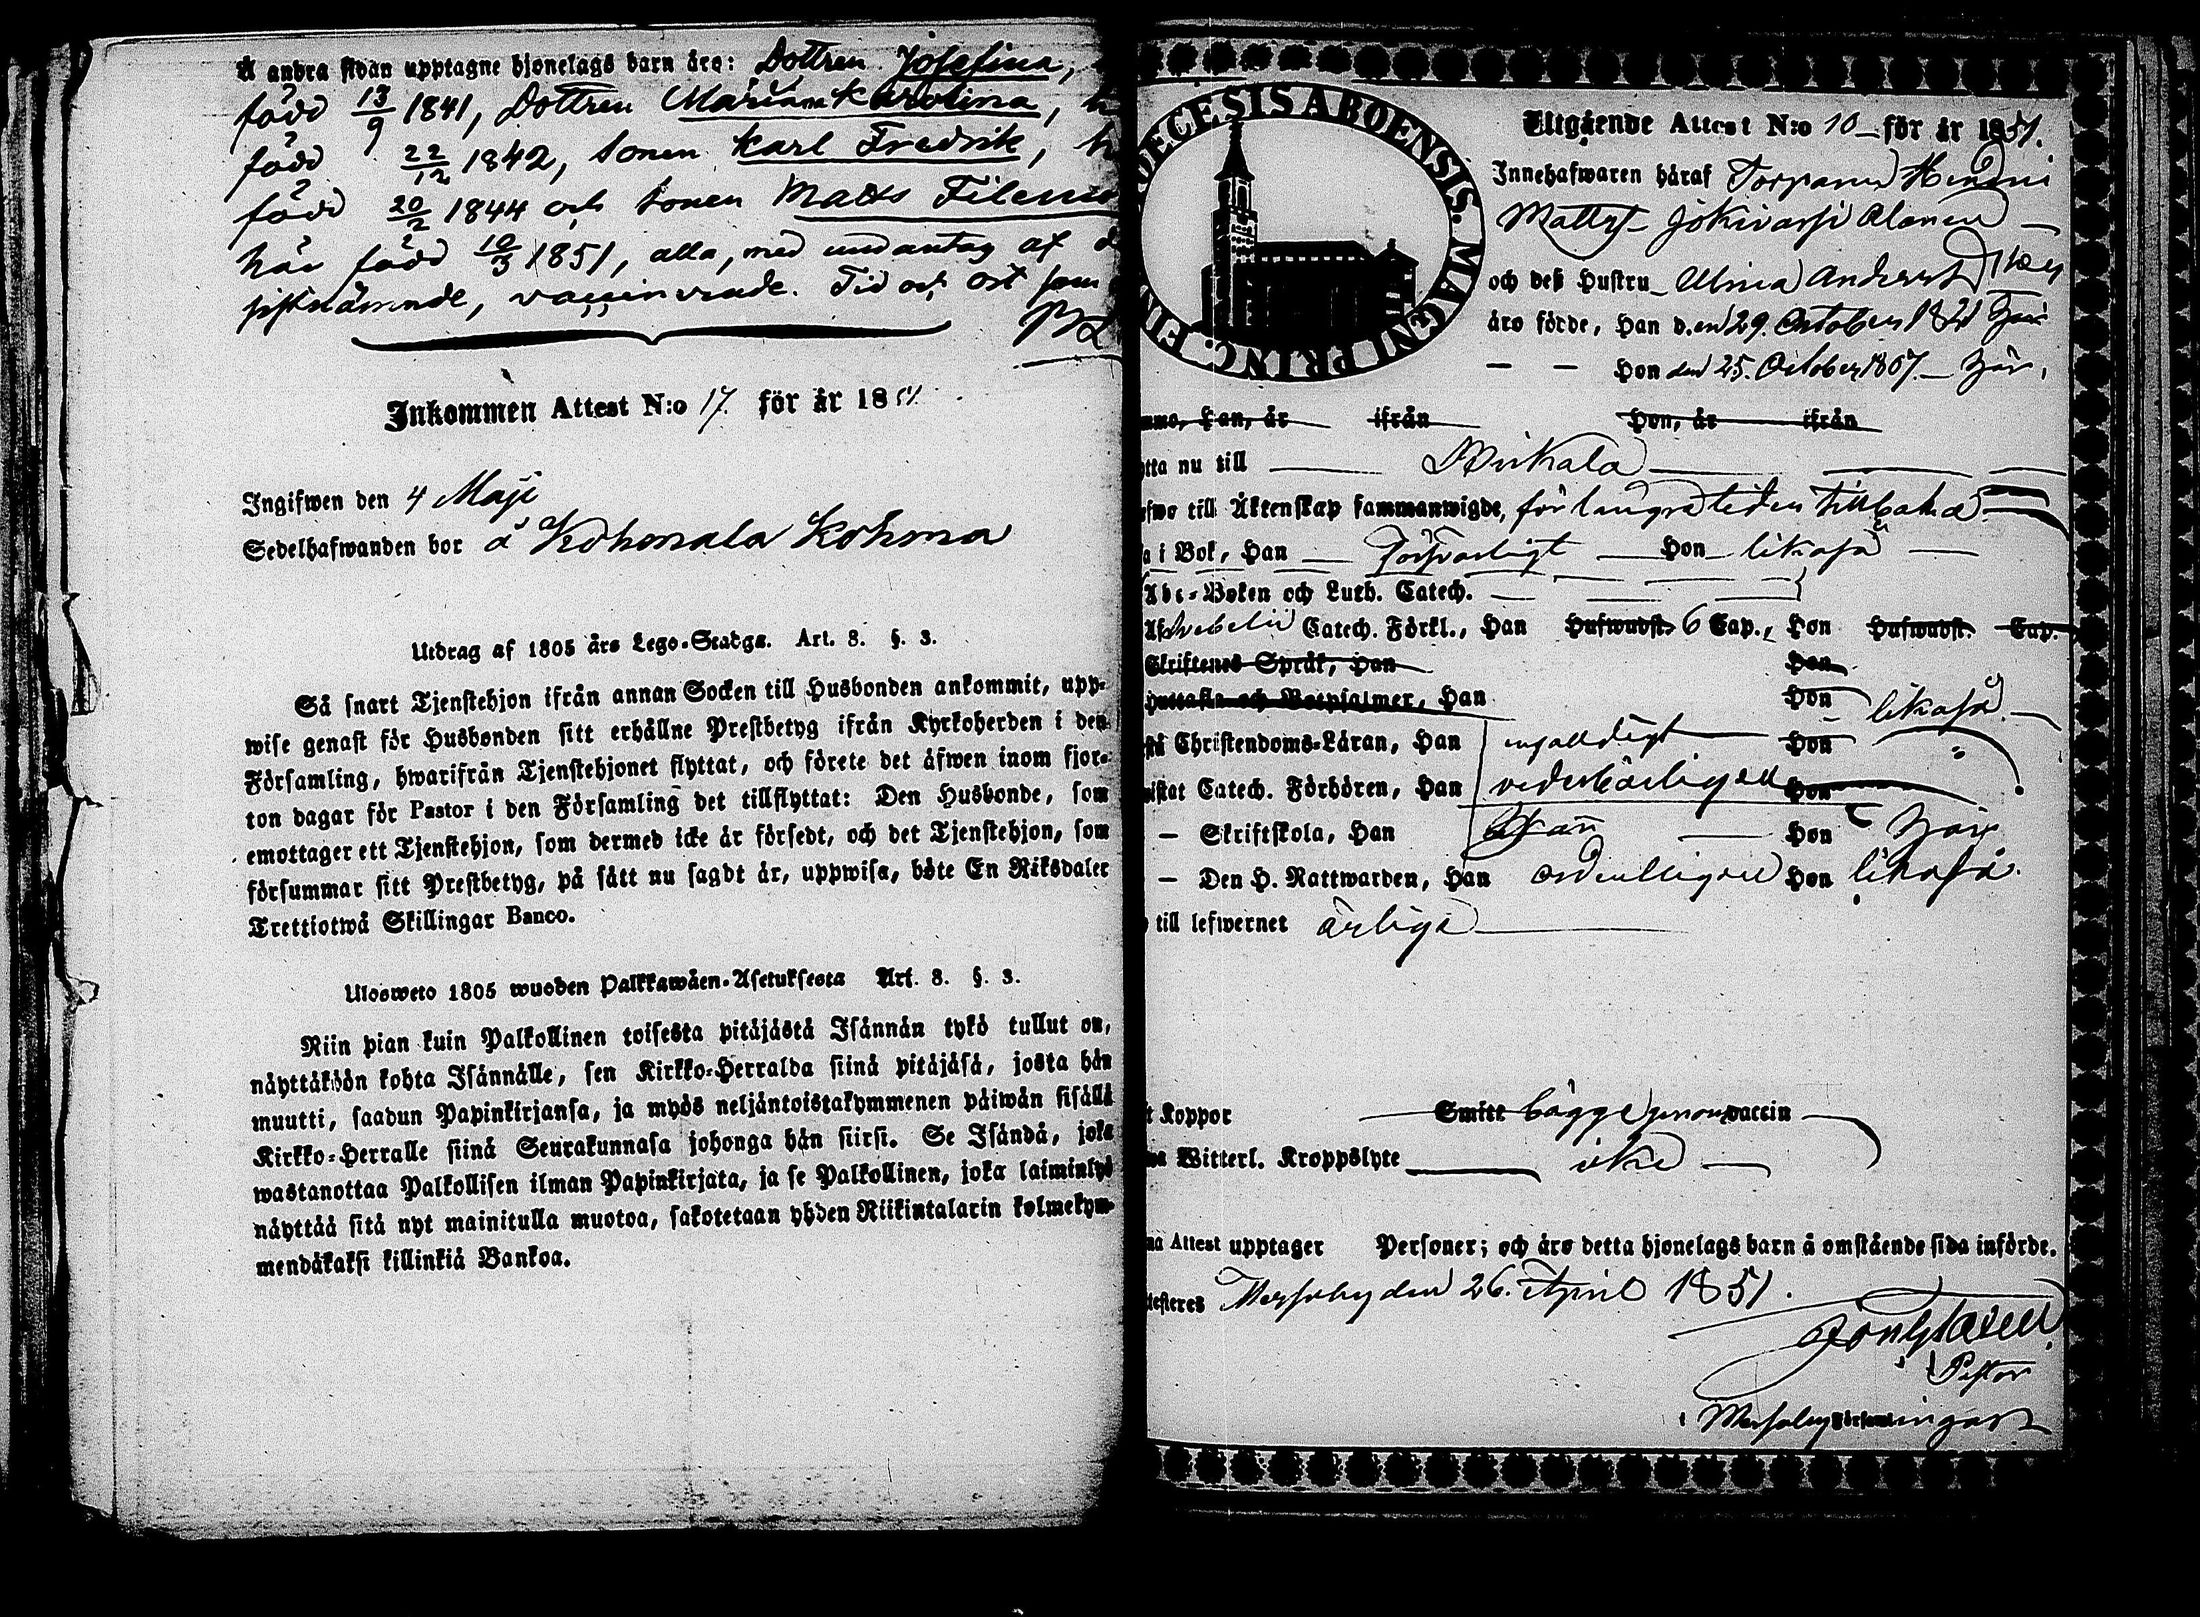 Å andra sidan upptagne hjonelags barn äro: Dottren Josefina,
född 13/9 1841, Dottren Maria Karolina,
född 22/12 1842, Sonen Karl Fredrik,
född 20/2 1844 och Sonen Matts
här född 10/3 1851, alla, med undantag af
sistnämnde, vaccinerade. Tid och ort som
Inkommen Attest N:o 17. för år 1851.
Ingifwen den 4 Maji
Sedelhafwanden bor å Kohmala Kohma
Utdrag af 1805 års Lego-Stadga. Art. 8. §. 3.
Så snart Tjenstehjon ifrån annan Socken till Husbonden ankommit, upp-
wise genast för Husbonden sitt erhållne Prestbetyg ifrån Kyrkoherden i den
Församling, hwarifrån Tjenstehjonet flyttat, och förete det äfwen inom fjor-
ton dagar för Pastor i den Församling det tillflyttat: Den Husbonde, som
emottager ett Tjenstehjon, som dermed icke är försedt, och det Tjenstehjon, som
försummar sitt Prestbetyg, på sätt nu sagdt är, uppwisa, böte En Riksdaler
Trettiotwå Skillingar Banco.
Ulosweto 1805 wuoden Palkkawäen-Asetuksesta Art. 8. §. 3.
Niin pian kuin Palkollinen toisesta pitäjästä Isännän tykö tullut on,
näyttäköön kohta Isännälle, sen Kirkko-Herralda siinä pitäjäsä, josta hän
muutti, saadun Papinkirjansa, ja myös neljäntoistakymmenen päiwän sisällä
Kirkko-Herralle siinä Seurakunnasa johonga hän siirsi. Se Isändä, joka
wastanottaa Palkollisen ilman Papinkirjata, ja se Palkollinen, joka laiminlyö
näyttää sitä nyt mainitulla muotoa, sakotetaan yhden Riikintalarin kolmekym-
mendäkaksi killinkiä Bankoa.
DECESIS ABOENSIS. MAGNI PRINC. FIN
Utgående Attest N:o 10 för år 1851.
Innehafwaren häraf Torparen
Matts Jokivarsi Alanen
och deß Hustru Ulrica Andersd
äro födde, Han den 29. October 1821 här
Hon den 25. October 1807. här,
Han, år ifrån Hon, år ifrån
nu till Birkala
till Äktenskap sammanwigde, för längre tiden tillbaka
i Bok, Han försvarligt Hon likaså
Abc-Boken och Luth. Catech.
Af Svebelii Catech. Förkl., Han Hufwudst. 6 Cap., Hon Hufwudst. Cap.
Skriftenes Språk, Han Hon
Hustafla och Botpsalmer, Han Hon likaså
Christendoms-Läran, Han Hon
Catech. Förhören, Han vederbörligen Hon
– Skriftskola, Han Hon
– Den H. Nattwarden, Han ordentligen Hon likaså.
till lefwernet ärliga
Koppor Smitt bägge genom vaccin
Witterl. Kroppslyte icke
Attest upptager Personer; och äro detta hjonelags barn å omstående sida införde.
den 26. April 1851.
Pastor